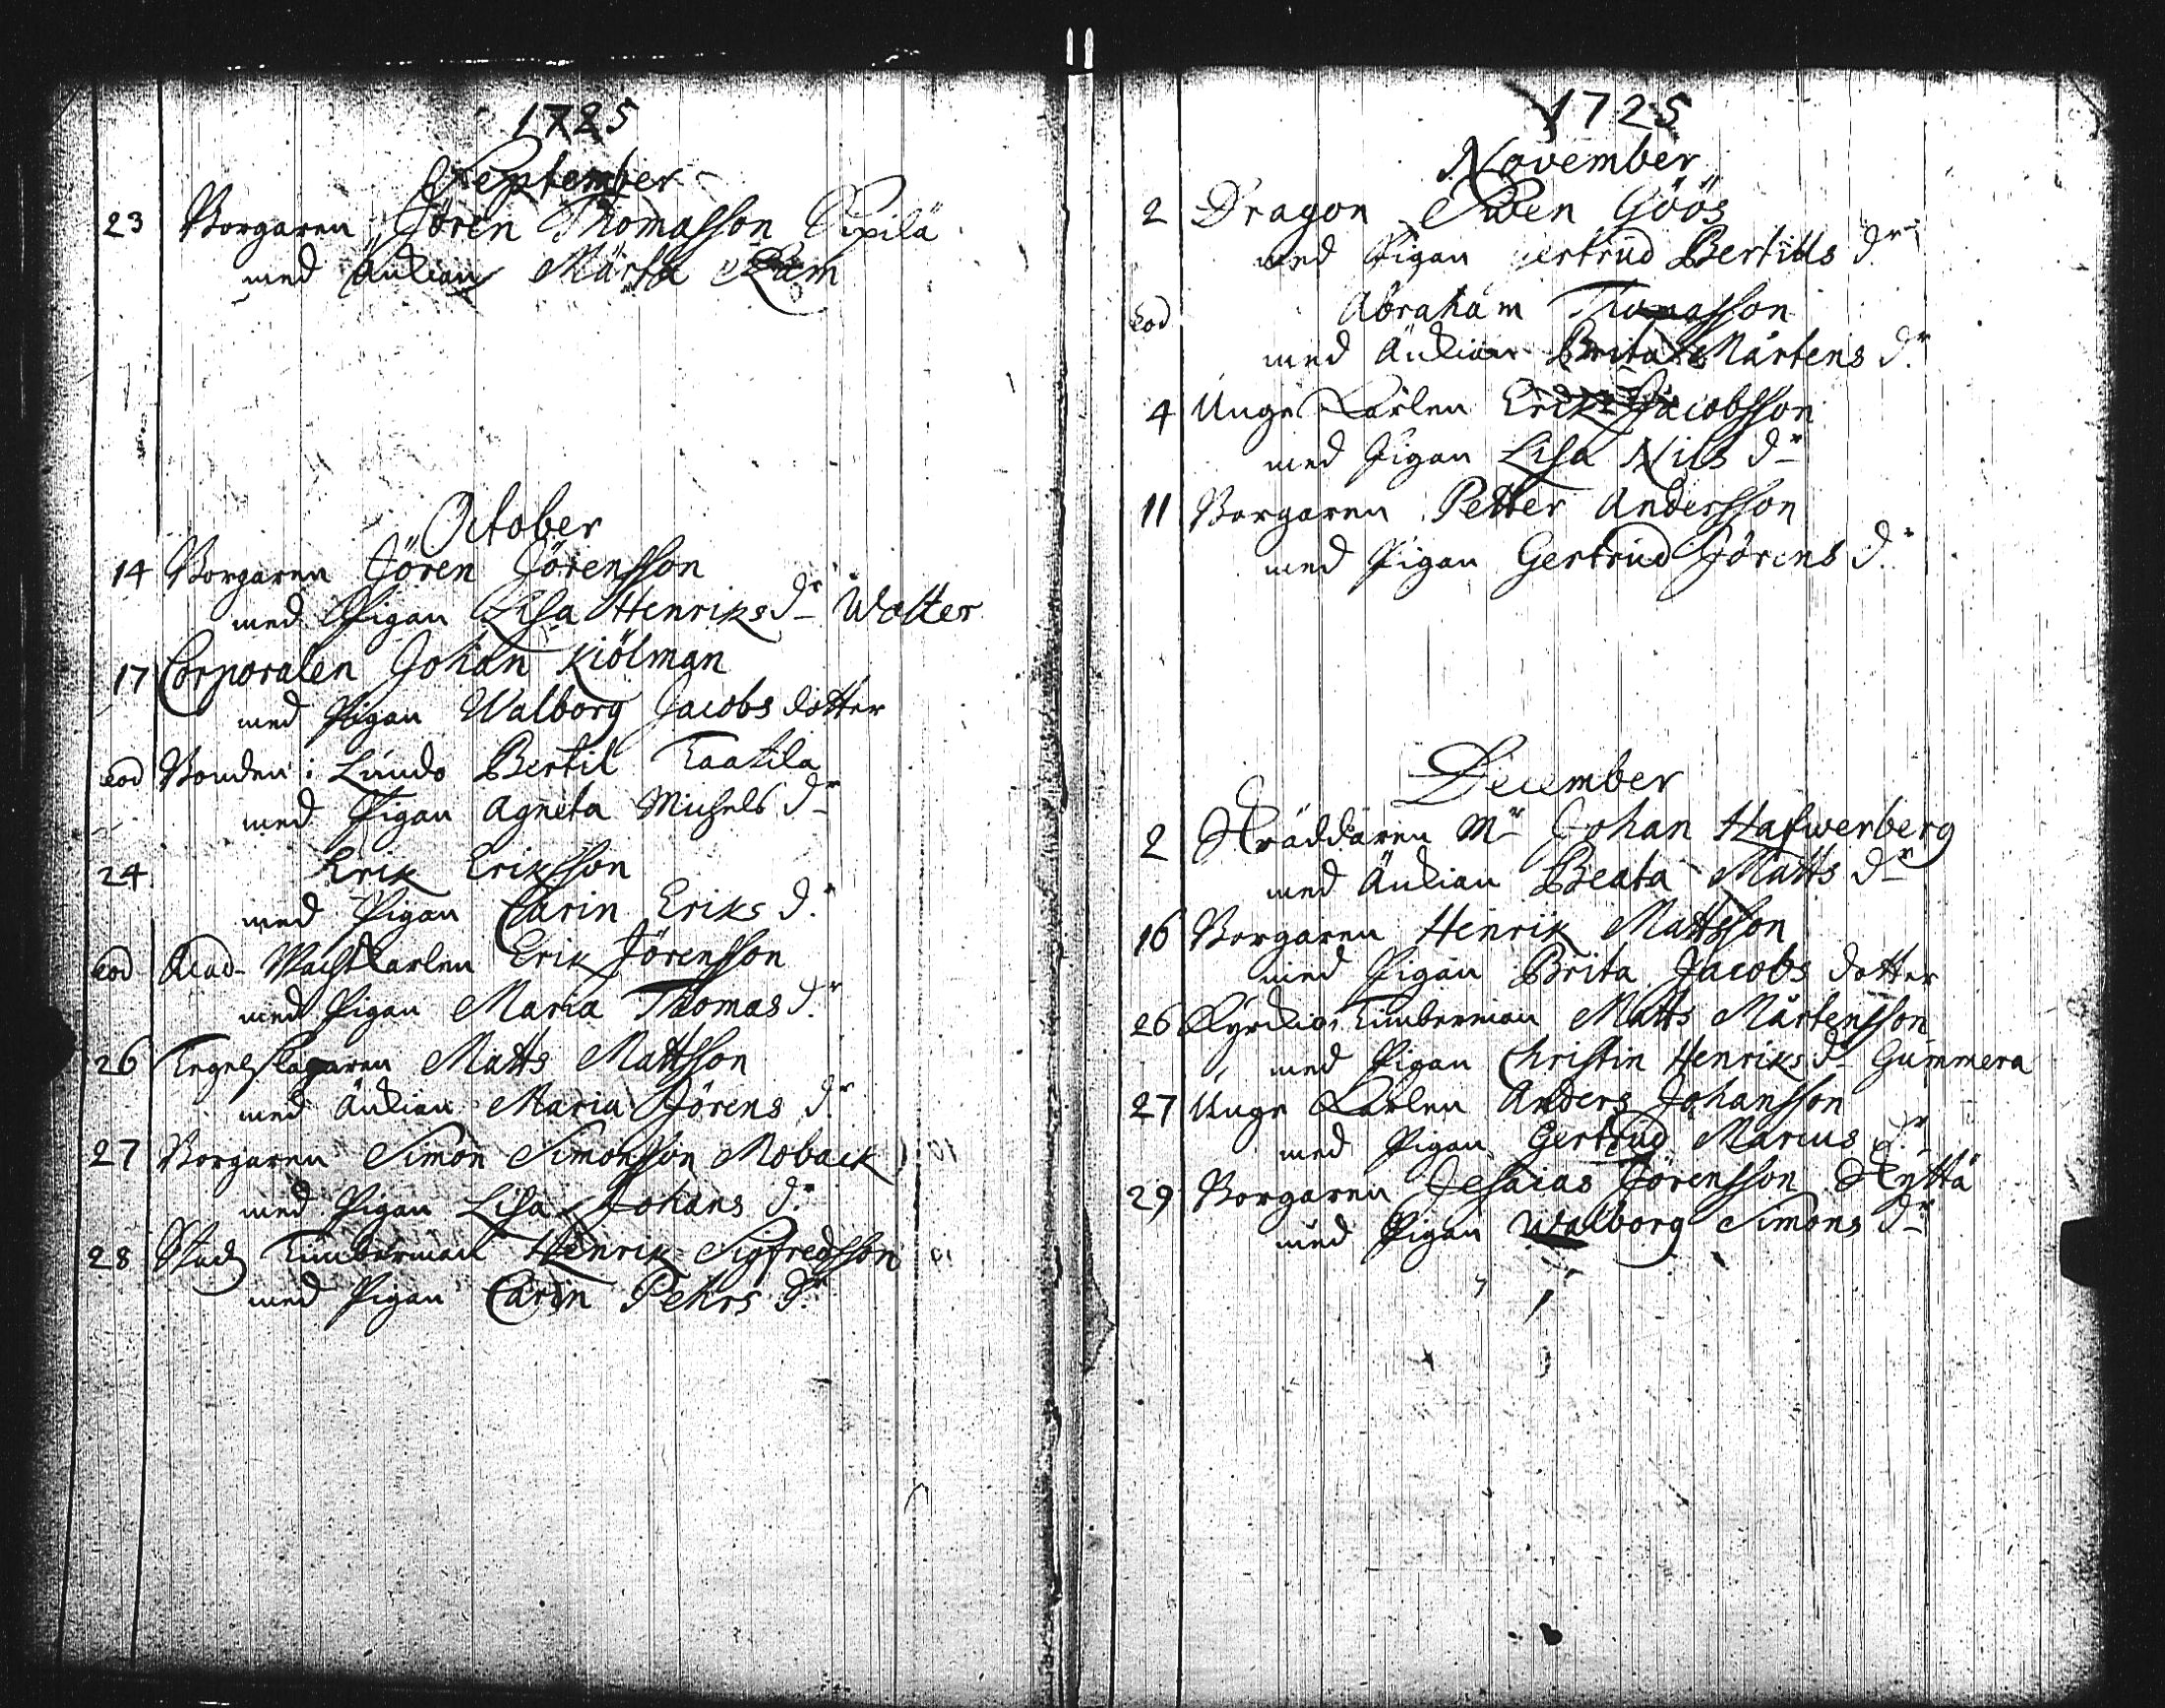 1725
September
23 Borgaren Jören Thomasson Sipilä
med Änkian Märta Ram
October
14 Borgaren Jören Jörensson
med Pigan Lisa Henriks dr Wolter
17 Corporalen Johan Kiölman
med Pigan Walborg Jacobs dotter
eod Bonden i Lundo Bertil Taatila
med Pigan Agneta Michels dr
24 Erik Eriksson
med Pigan Carin Eriks dr
eod Acad. Wachtkarlen Erik Jörensson
med Pigan Maria Thomas dr
26 Tegelslagaren Matts Mattsson
med Änkian Maria Jörens dr
27 Borgaren Simon Simonsson Moback
med Pigan Lisa Johans dr
28 Stads Timberman Henrik Sigfredsson
med Pigan Carin Pehrs dr
1725
November
2 Dragon Swen Göös
med Pigan gertrud Bertills dr
eod Abraham Thomasson
med Änkian Brita Mårtens dr
4 Unge Karlen Erik Jacobsson
med Pigan Lisa Nils dr
11 Borgaren Petter Andersson
med Pigan Gertrud Jörens dr
December
2 Skräddaren Mr Johan Hafwerberg
med Änkian Beata Matts dr
16 Borgaren Henrik Mattsson
med Pigan Brita Jacobs dotter
26 Kyrckio Timberman Matts Mårtensson
med Pigan Christin Henriks dr Gummera
27 Unge Karlen Anders Johansson
med Pigan Gertrud Marcus dr
29 Borgaren Jesaias Jörensson Kyttä
med Pigan Walborg Simons dr